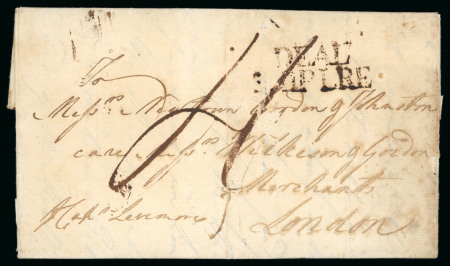 DEAL
SHIP LRE
To
Mess.rs Newton Gordon & Johnston
care Mess.rs Wilkinson & Gordon
Merchants
London
4